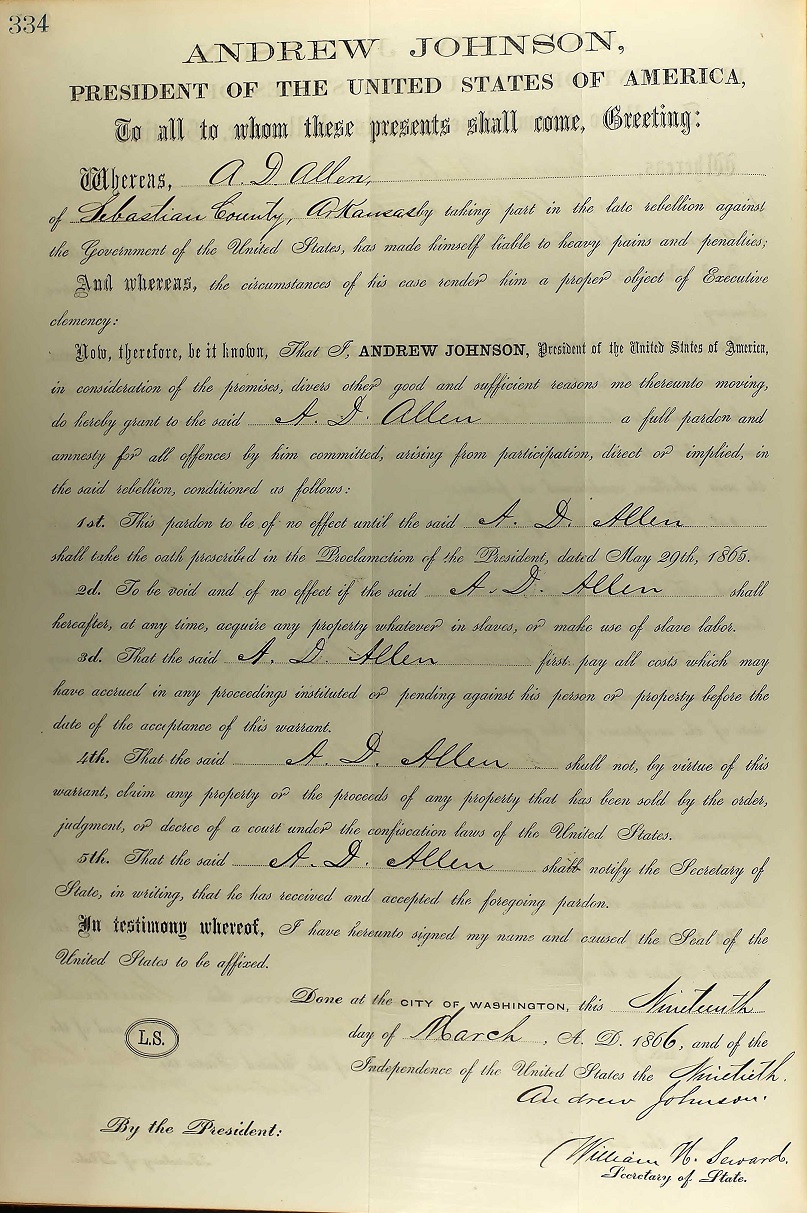 334
ANDREW JOHNSON,
PRESIDENT OF THE UNITED STATES OF AMERICA,
To all to whom these presents shall come, Greeting:
Whereas, A. D. Allen,
of Sebastian County, Arkansas by taking part in the late rebellion against
the Government of the United States, has made himself liable to heavy pains and penalties;
And whereas, the circumstances of his case render him a proper object of Executive
clemency:
Now, therefore, be it known, That I, ANDREW JOHNSON, President of the United States of America,
in consideration of the premises, divers other good and sufficient reasons me thereunto moving,
do hereby grant to the said A. D. Allen a full pardon and
amnesty for all offences by him committed, arising from participation, direct or implied, in
the said rebellion, conditioned as follows:
1st. This pardon to be of no effect until the said A. D. Allen
shall take the oath prescribed in the Proclamation of the President, dated May 29th, 1865.
2d. To be void and of no effect if the said A. D. Allen shall
hereafter, at any time, acquire any property whatever in slaves, or make use of slave labor.
3d. That the said A. D. Allen first pay all costs which may
have accrued in any proceedings instituted or pending against his person or property before the
date of the acceptance of this warrant.
4th. That the said A. D. Allen shall not, by virtue of this
warrant, claim any property or the proceeds of any property that has been sold by the order,
judgment, or decree of a court under the confiscation laws of the United States.
5th. That the said A. D. Allen shall notify the Secretary of
State, in writing, that he has received and accepted the foregoing pardon.
In testimony whereof, I have hereunto signed my name and caused the Seal of the
United States to be affixed.
Done at the CITY OF WASHINGTON, this Nineteenth
day of March, A. D. 1866, and of the
L.S.
Independence of the United States the Ninetieth.
Andrew Johnson.
By the President:
William H. Seward.
Secretary of State.